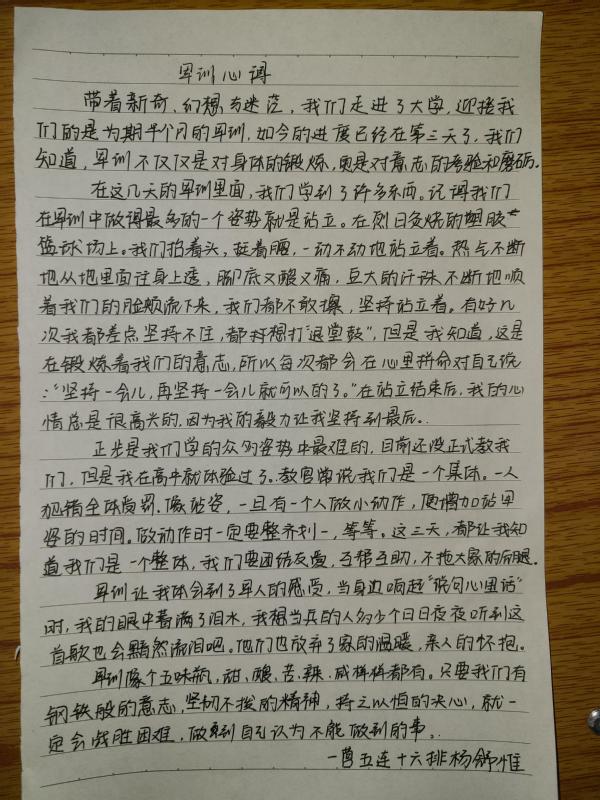 军训心得
带着新奇、幻想与迷茫，我们走进了大学，迎接我
们的是为期半个月的军训，如今的进度已经在第三天了，我们
知道，军训不仅仅是对身体的锻炼，更是对意志的考验和磨砺。
在这几天的军训里面，我们学到了许多东西。记得我们
在军训中做得最多的一个姿势就是站立。在烈日灸烧的塑胶
篮球场上。我们抬着头，挺着腰，一动不动地站立着。热气不断
地从地里面往身上透，脚底又酸又痛，豆大的汗珠不断地顺
着我们的脸颊流下来，我们都不敢擦，坚持站立着。有好几
次我都差点坚持不住，都好想打"退堂鼓"，但是我知道，这是
在锻炼着我们的意志，所以每次都会在心里拼命对自己说
："坚持一会儿，再坚持一会儿就可以的了。"在站立结束后，我的心
情总是很高兴的，因为我的毅力让我坚持到最后。
正步是我们学的众多姿势中最难的，目前还没正式教我
们，但是我在高中就体验过了。教官常说我们是一个集体。一人
犯错全体受罚。像站姿，一旦有一个人做小动作，便增加站军
姿的时间。做动作时一定要整齐划一，等等。这三天，都让我知
道我们是一个整体，我们要团结友爱，互帮互助，不拖大家的后腿。
军训让我体会到了军人的感受，当身边响起"说句心里话"
时，我的眼中蓄满了泪水，我想当兵的人多少个日日夜夜听到这
首歌也会黯然流泪吧。他们也放弃了家的温暖，亲人的怀抱。
军训像个五味瓶，甜、酸、苦、辣、咸样样都有。只要我们有
钢铁般的意志，坚韧不拔的精神，持之以恒的决心，就一
定会战胜困难，做到自己认为不能做到的事。
一营五连十六排杨舒惟